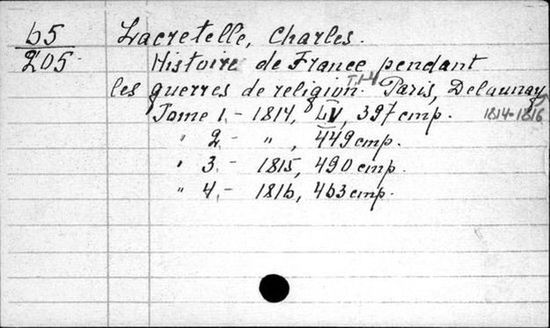 65
205
Lacretelle, Charles.
Histoire de France pendant
les guerres de religion. T.1-4 Paris, Delaunay,
1814-1816
Tome 1.- 1814, LV, 397 стр.
" 2.- ", 449 стр.
" 3.- 1815, 490 стр.
" 4.- 1816, 463 стр.